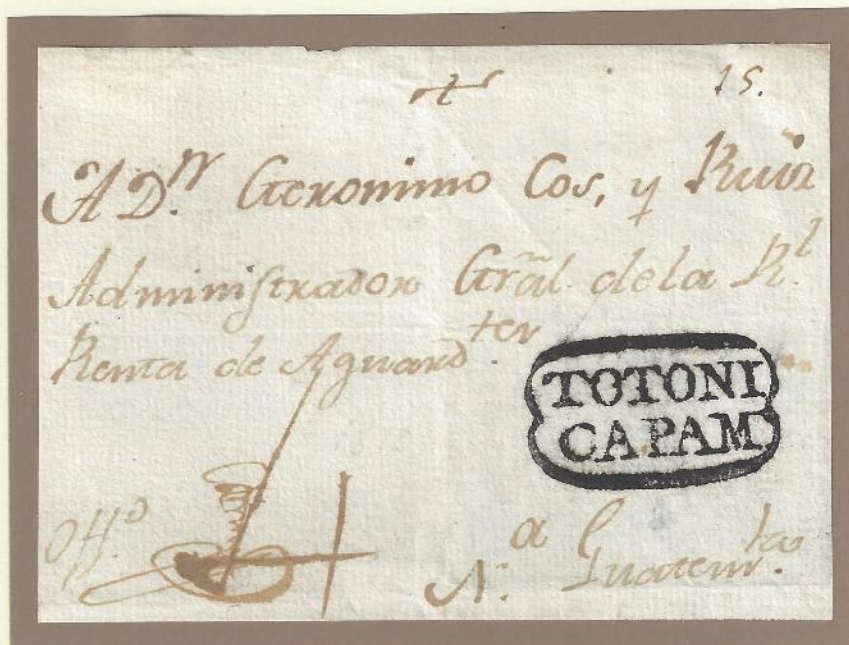 15.
A D.ⁿ Geronimo Cos, y Ruiz
Administrador Grāl. de la R.ˡ
Renta de Aguard.ᵗᵉˢ
TOTONI
CAPAM
Off.º
N.ᵃ Guatem.ˡᵃ